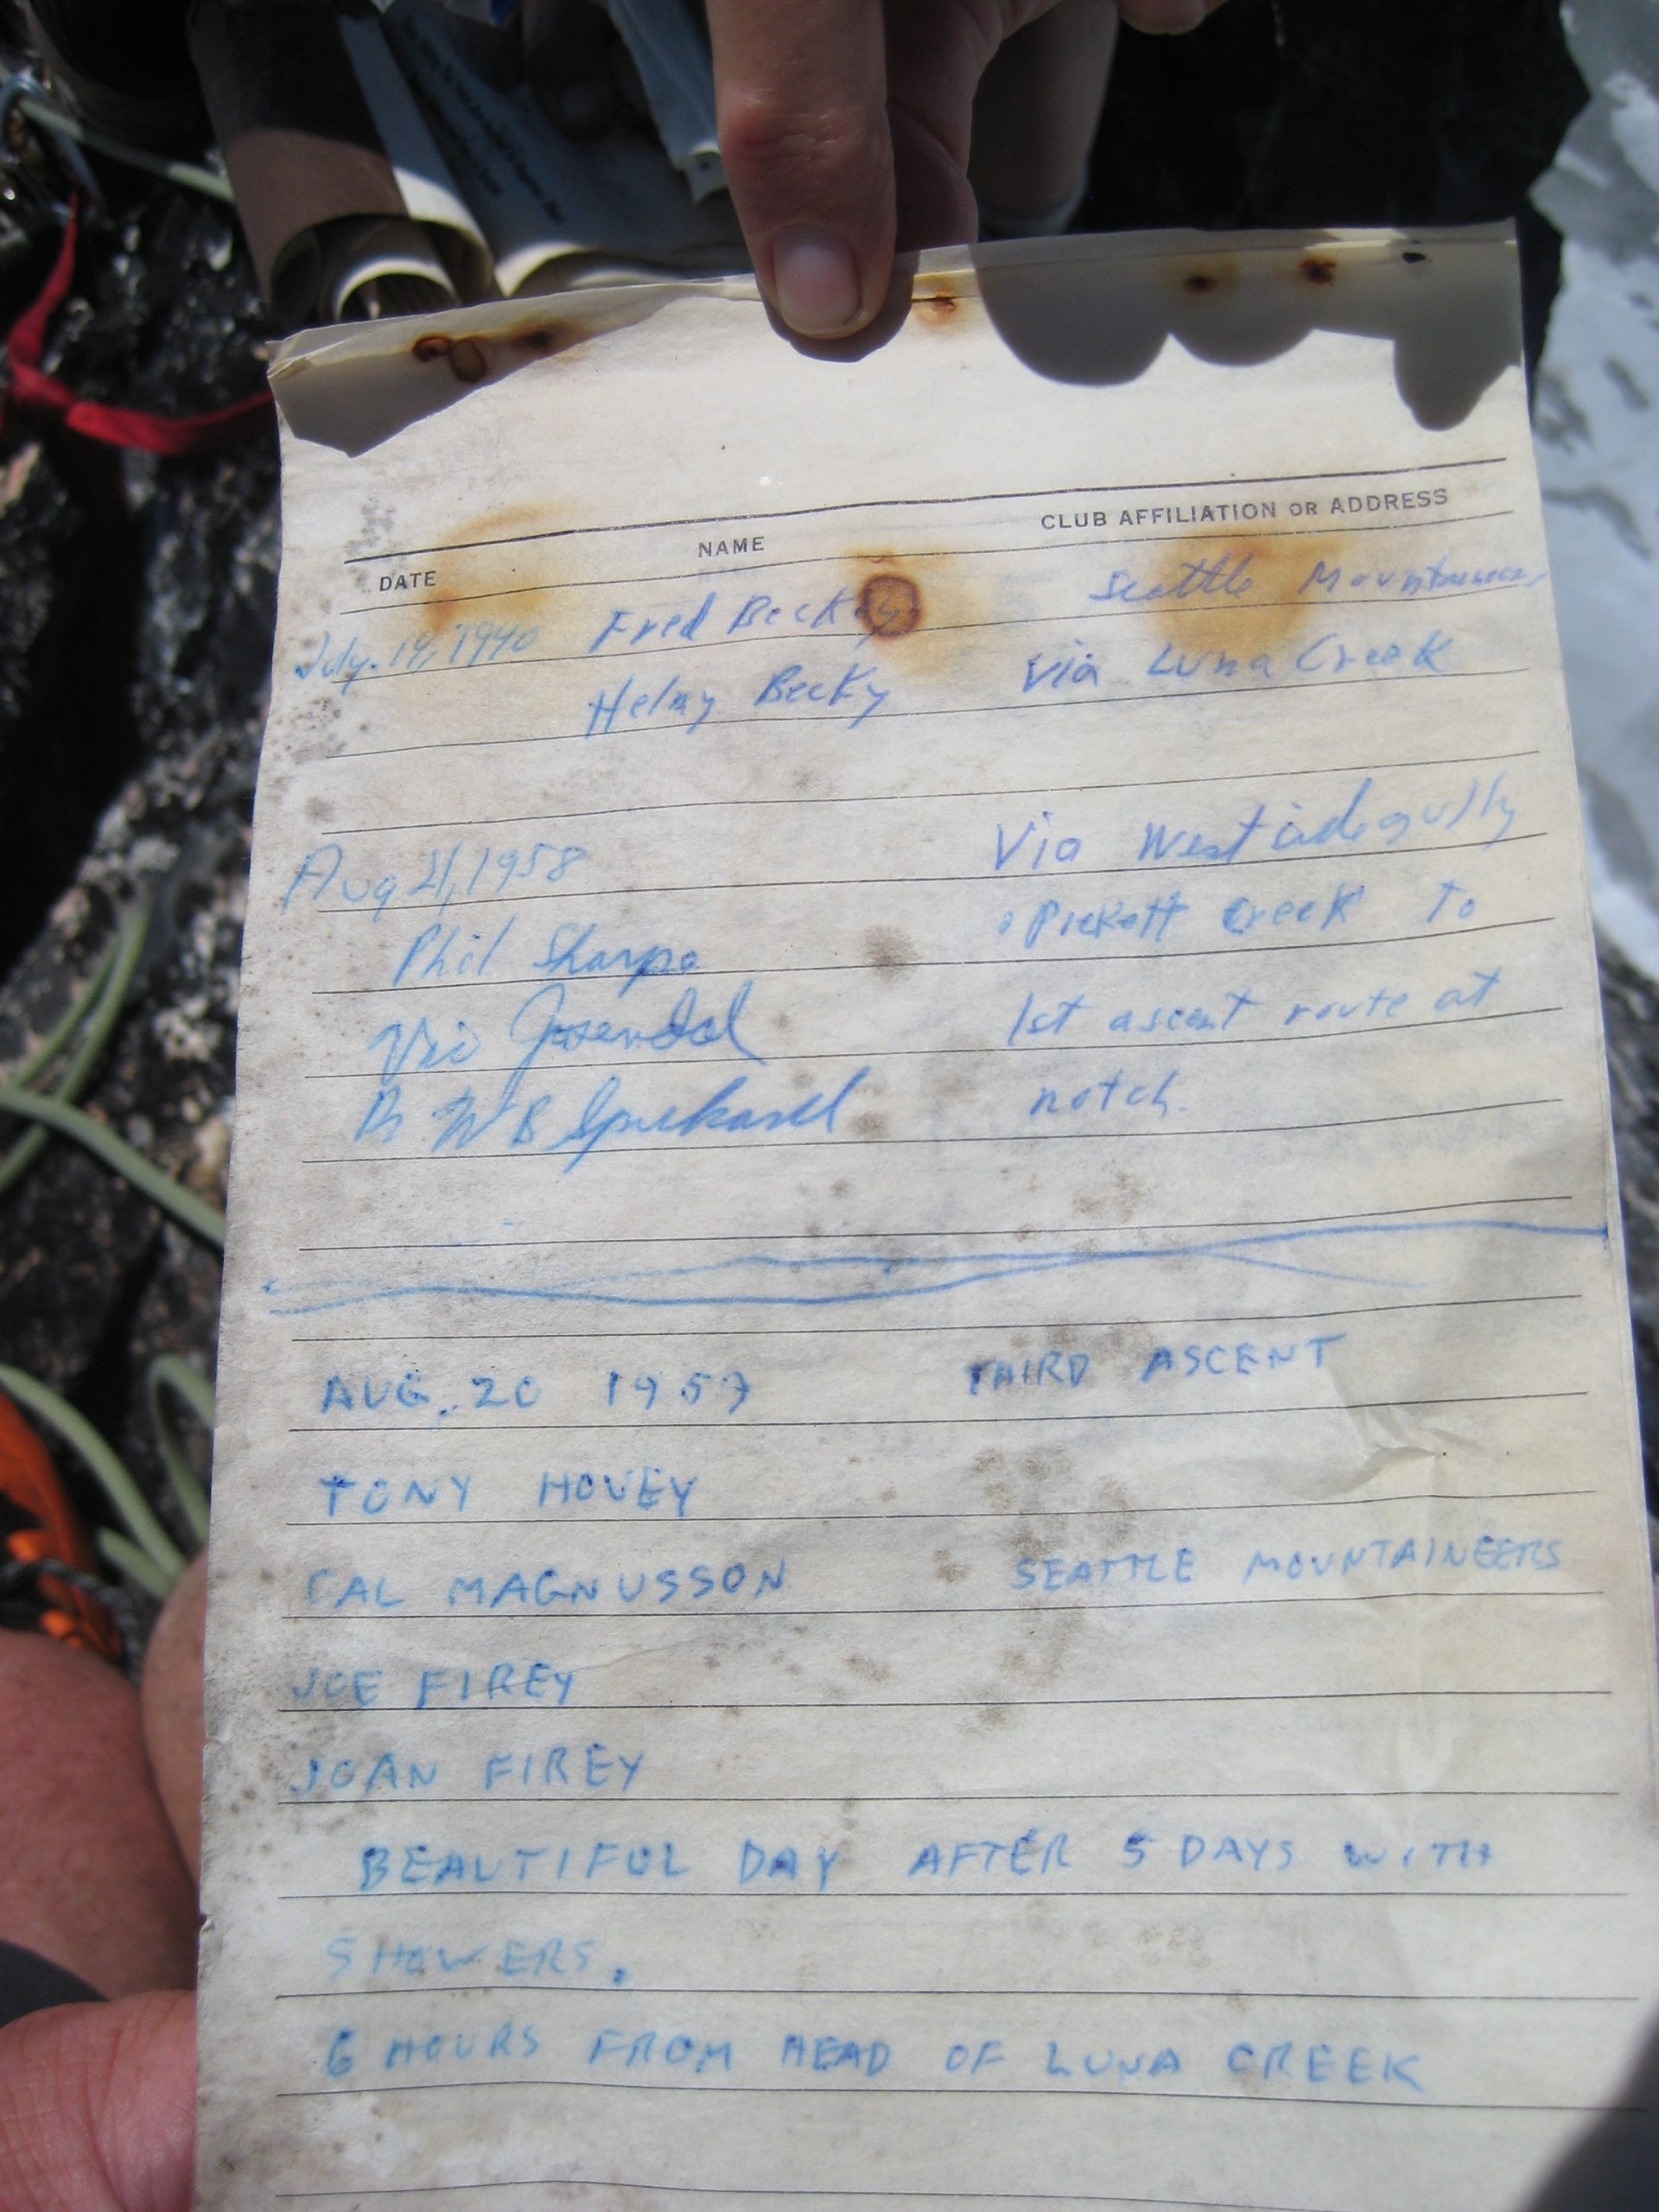 DATE NAME CLUB AFFILIATION OR ADDRESS
July. 19, 1940 Fred Becky Seattle Mountaineers
Helmy Becky Via Luna Creek
Aug 21, 1958 Via West side gully
Phil Sharpe Pickett Creek To
Vic Josendal 1st ascent route at
W B Spickard notch.
AUG. 20 1959 THIRD ASCENT
TONY HOVEY
CAL MAGNUSSON SEATTLE MOUNTAINEERS
JOE FIREY
JOAN FIREY
BEAUTIFUL DAY AFTER 5 DAYS WITH
SHOWERS.
6 HOURS FROM HEAD OF LUNA CREEK